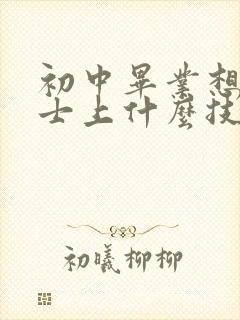 初中畢業想
士上什麼技
初曦柳柳